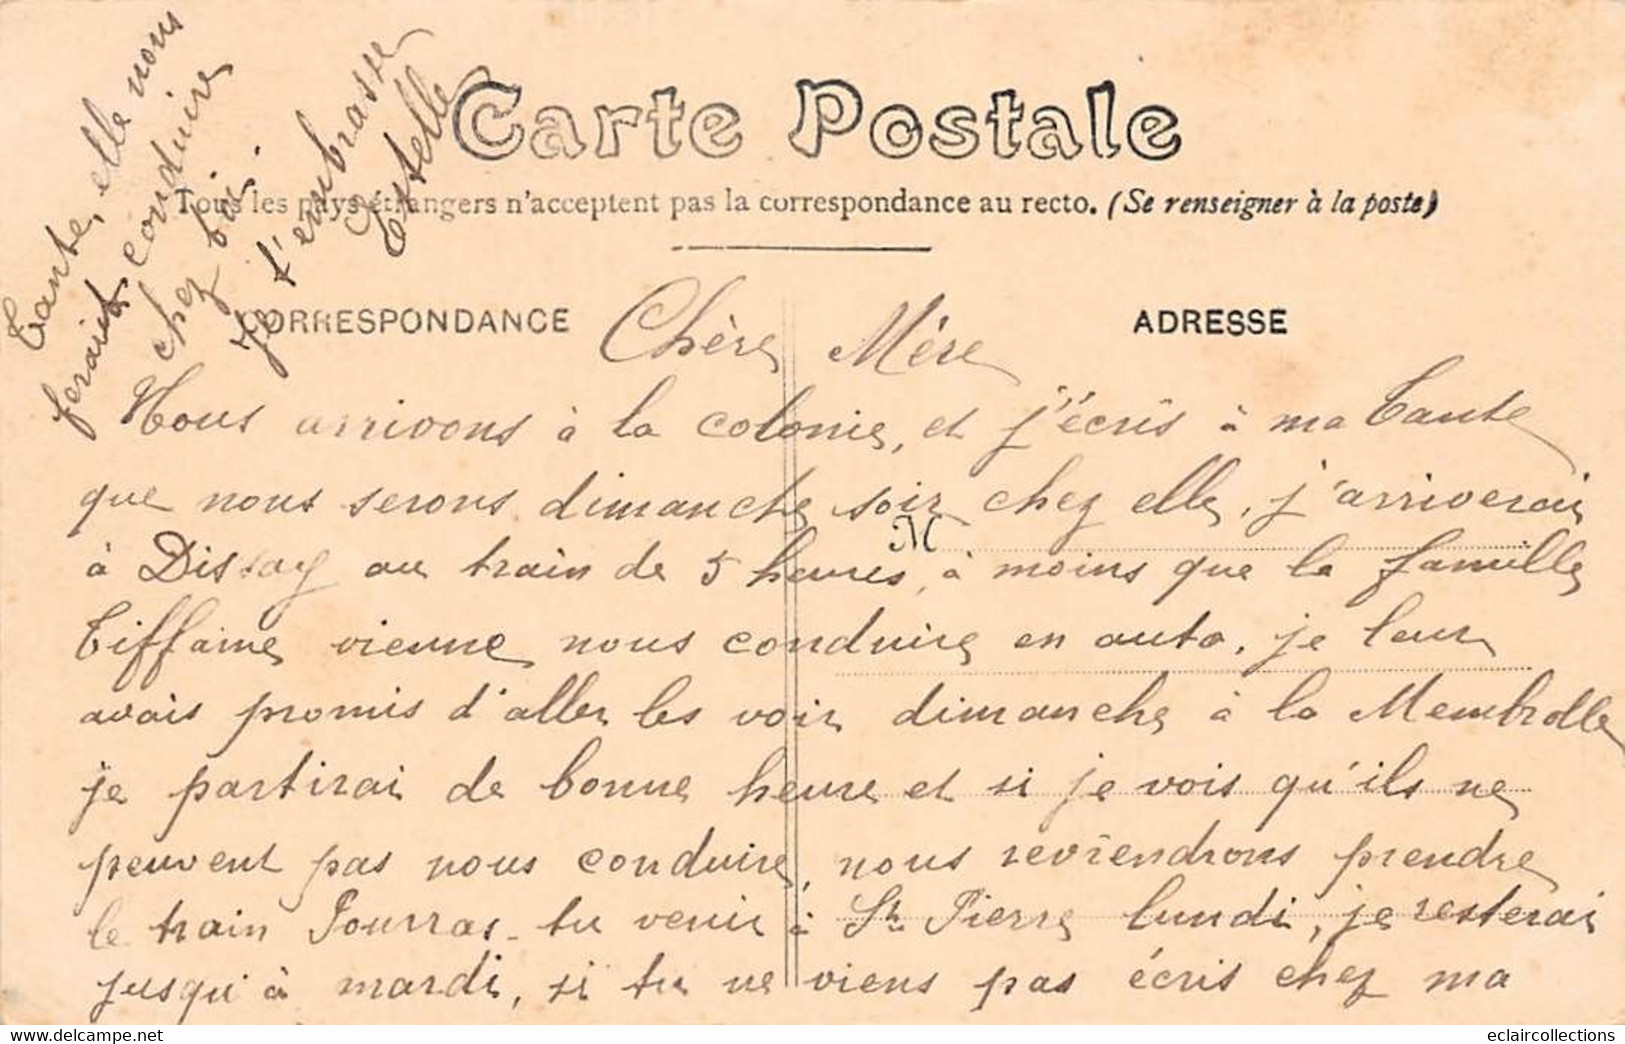 Carte Postale
Tous les pays étrangers n'acceptent pas la correspondance au recto. (Se renseigner à la poste)
CORRESPONDANCE
ADRESSE
M
Chère Mère
Nous arrivons à la colonie, et j'écris à ma Tante
que nous serons dimanche soir chez elle, j'arriverai
à Dissay au train de 5 heures, à moins que la famille
Tiffaine vienne nous conduire en auto, je leur
avais promis d'aller les voir dimanche à la Membrolle
je partirai de bonne heure et si je vois qu'ils ne
peuvent pas nous conduire, nous reviendrons prendre
le train Pourras-tu venir à St Pierre lundi, je resterai
jusqu'à mardi, si tu ne viens pas écris chez ma
Tante, elle nous
ferait conduire
chez toi.
Je t'embrasse
Estelle
hna-155
eclaircollections